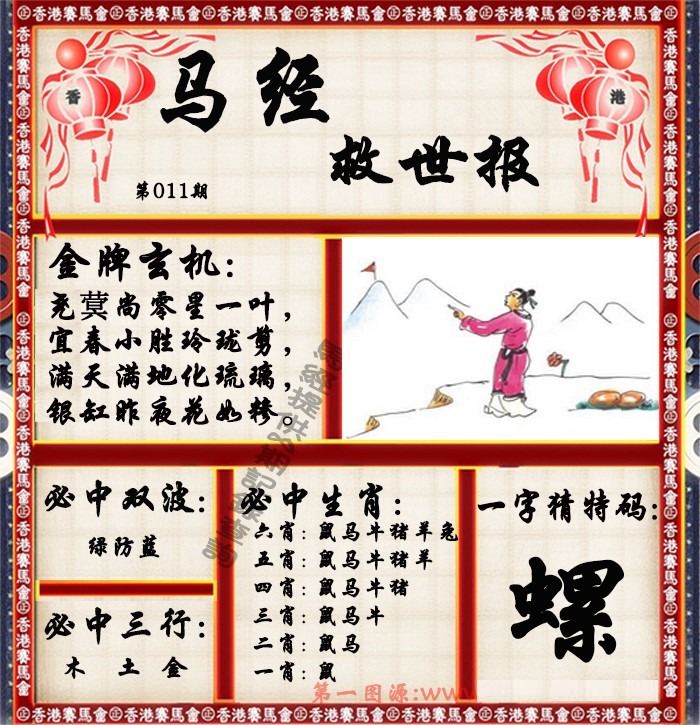 香港賽馬會
香 港
马经
救世报
第011期
金牌玄机:
尧蓂尚零星一叶,
宜春小胜玲珑剪,
满天满地化琉璃,
银缸昨夜花如糁。
必中双波:
绿防蓝
必中三行:
木 土 金
必中生肖:
六肖: 鼠马牛猪羊兔
五肖: 鼠马牛猪羊
四肖: 鼠马牛猪
三肖: 鼠马牛
二肖: 鼠马
一肖: 鼠
一字猜特码:
螺
第一图源:www